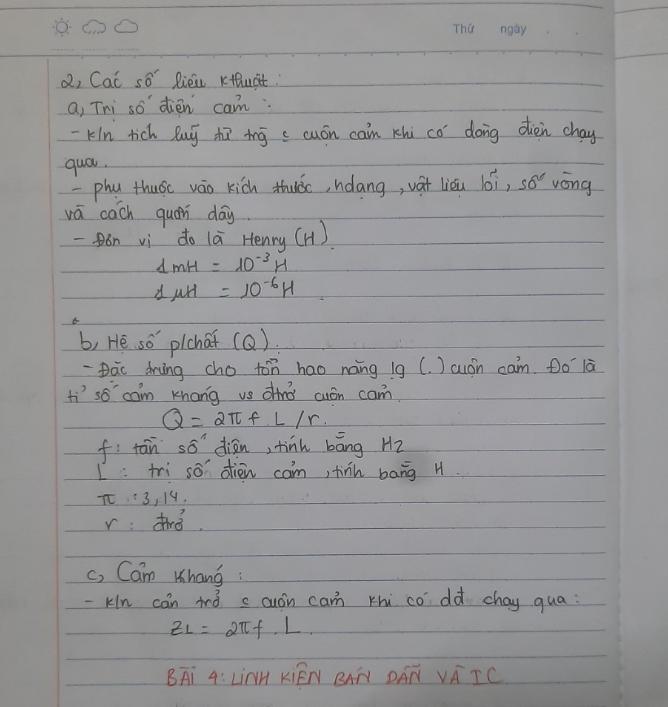 Thứ ngày . .
2, Các số liệu kthuật:
a, Trị số điện cảm:
- k/n tích luỹ từ trg c cuộn cảm khi có dòng điện chạy
qua.
- phụ thuộc vào kích thước, hdạng, vật liệu lõi, số vòng
và cách quấn dây.
- Đơn vị đo là Henry (H)
1 mH = 10⁻³ H
1 μH = 10⁻⁶ H
b, Hệ số p/chất (Q).
- Đặc trưng cho tổn hao năng lg (.) cuộn cảm. Đó là
tỉ số cảm kháng vs đtrở cuộn cảm.
Q = 2πf.L/r.
f: tần số điện, tính bằng Hz
L: trị số điện cảm, tính bằng H.
π: 3,14.
r: đtrở.
c, Cảm kháng:
- k/n cản trở c cuộn cảm khi có dđ chạy qua:
ZL = 2πf.L.
BÀI 4: LINH KIỆN BÁN DẪN VÀ IC